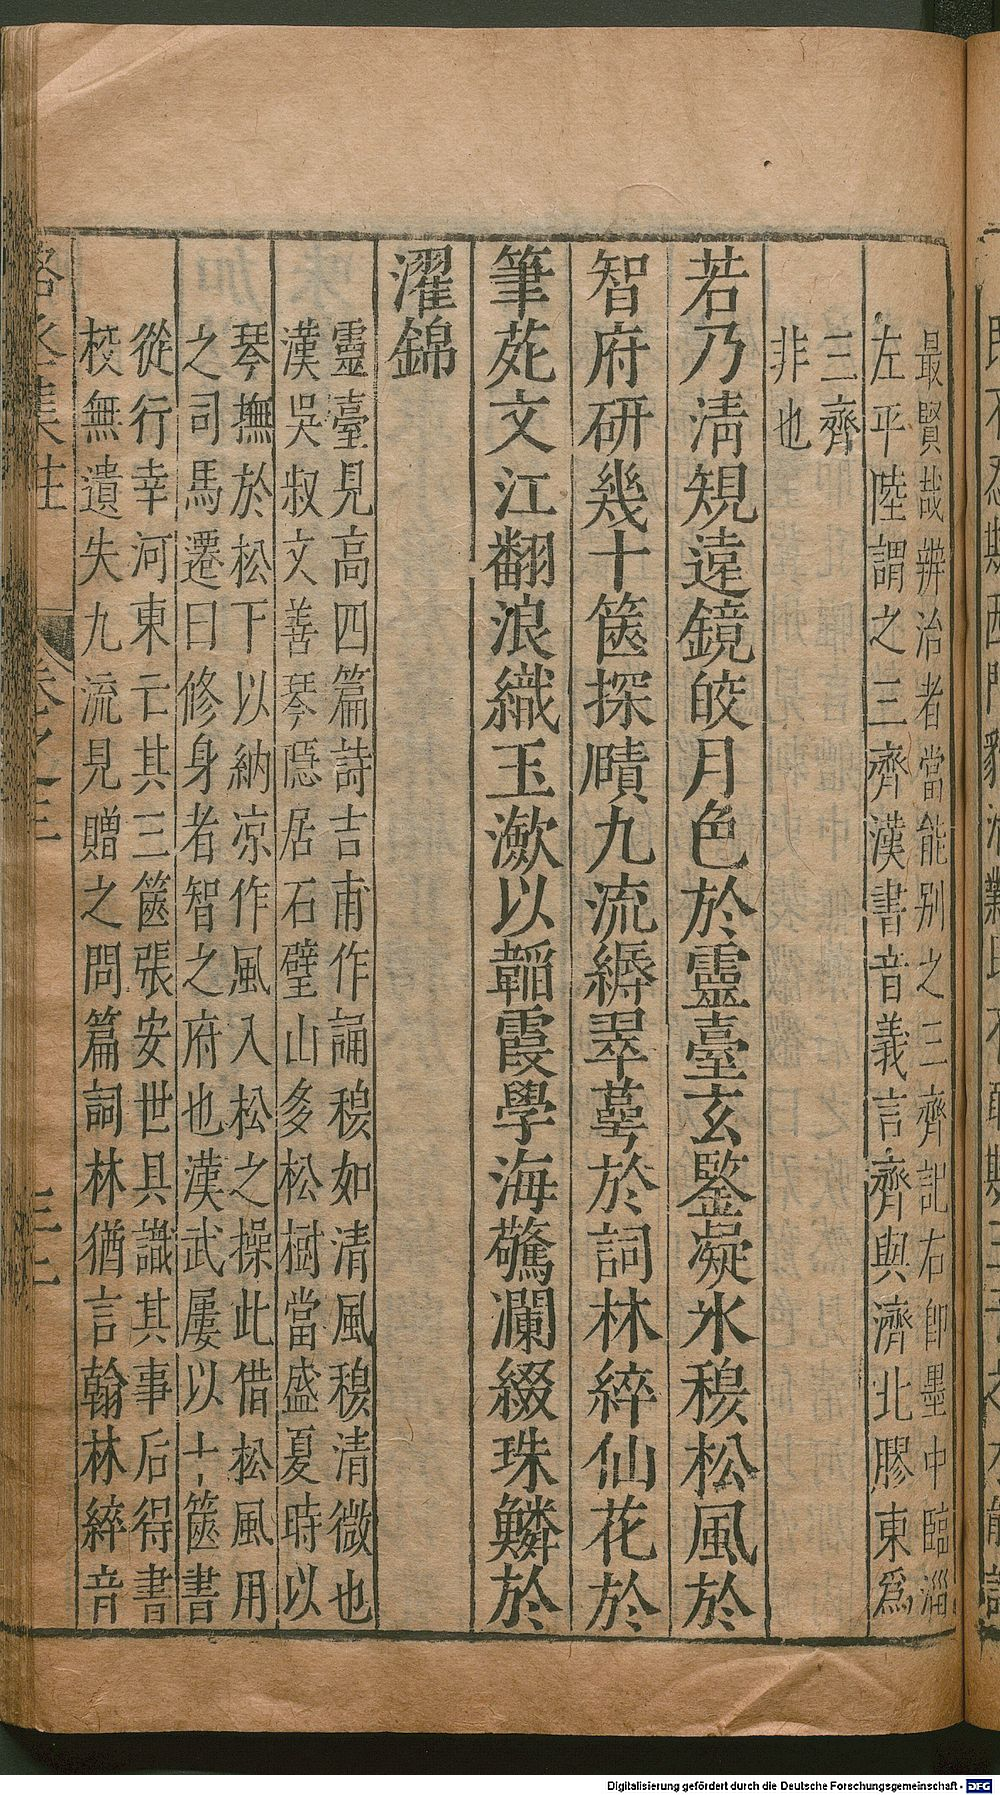 最賢哉辨治者當能别之三齊記右即墨中臨淄
左平陸謂之三齊漢書音義言齊與濟北膠東爲
三齊
非也
若乃清規遠鏡皎月色於靈臺玄鑒凝氷穆松風於
智府研幾十篋探賾九流縟翠萼於詞林綷仙花於
筆苑文江翻浪織玉潄以韜霞學海驚瀾綴珠鱗於
濯錦
靈臺見高四篇詩吉甫作誦穆如清風穆清微也
漢吳叔文善琴隱居石壁山多松樹當盛夏時以
琴撫於松下以納凉作風入松之操此借松風用
之司馬遷曰修身者智之府也漢武屢以十篋書
從行幸河東亡其三篋張安世具識其事后得書
校無遺失九流見贈之問篇詞林猶言翰林綷音
丞集註
卷之三
Digitalisierung gefördert durch die Deutsche Forschungsgemeinschaft - DFG